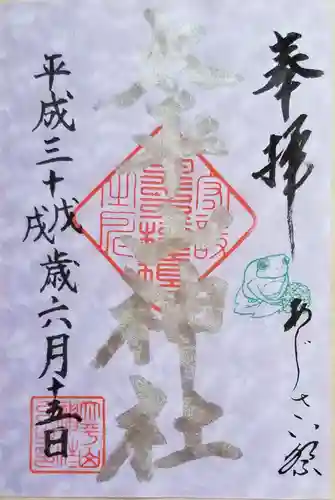 奉拝 あじさい祭
太平山神社
平成三十戊戌歳六月十五日